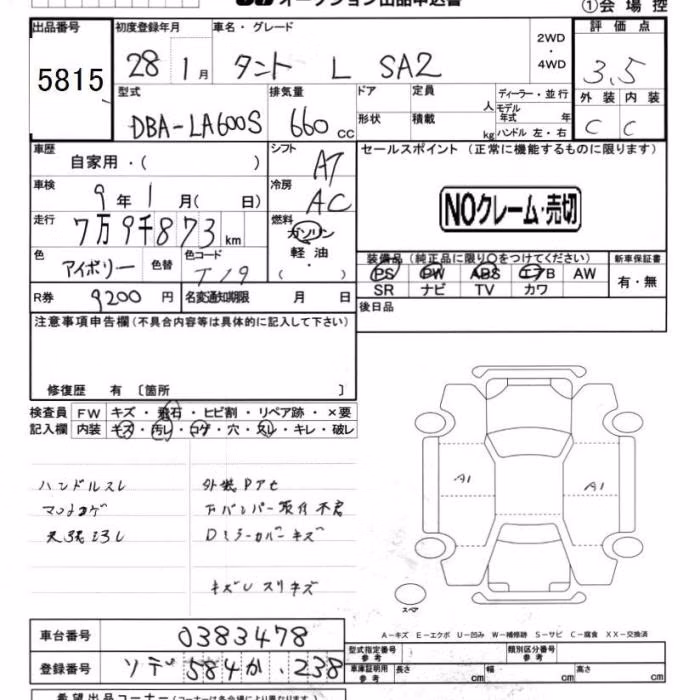 オークション出品申込書
①会場控
出品番号 初度登録年月 車名・グレード 2WD・4WD 評価点
5815 28 1月 タント L SA2 3.5
型式 排気量 ドア 定員 人 ディーラー・並行 外装 内装
DBA-LA600S 660cc 形状 積載 kg モデル年式 年 ハンドル 左・右 C C
車歴 自家用・( ) シフト AT セールスポイント (正常に機能するものに限ります)
車検 9年1月( 日) 冷房 AC
NOクレーム・売切
走行 7万9千873km 燃料 ガソリン・軽油・( )
色 アイボリー 色替 色コード T19
装備品 (純正品に限り○をつけてください) 新車保証書
PS PW ABS エアB AW 有・無
SR ナビ TV カワ
R券 9200円 名変通知期限 月 日 後日品
注意事項申告欄(不具合内容等は具体的に記入して下さい)
修復歴 有 〔箇所 〕
検査員 FW キズ・飛石・ヒビ割・リペア跡・×要
記入欄 内装 キズ・汚レ・コゲ・穴・スレ・キレ・破レ
ハンドルスレ 外装Pアセ
マットコゲ Fバンパー取付不良
天張ヨゴレ Dミラーカバーキズ
キズU スリキズ
A1 A1
スペア
A-キズ E-エクボ U-凹み W-補修跡 S-サビ C-腐食 XX-交換済
車台番号 0383478
型式指定番号 参考 類別区分番号 参考
登録番号 ソデ 584 か 238
車庫証明用 参考 長さ cm 幅 cm 高さ cm
希望出品コーナー(コーナーは各会場により異なります)